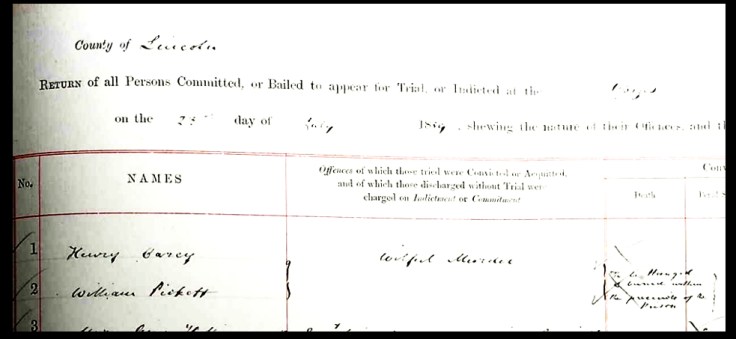 County of Lincoln
RETURN of all Persons Committed, or Bailed to appear for Trial, or Indicted at the
on the 25th day of July 1859, shewing the nature of their Offences, and th
No.
NAMES
Offences of which those tried were Convicted or Acquitted,
and of which those discharged without Trial were
charged on Indictment or Commitment
Conv
Death
1 Henry Carey
Wilful Murder
2 William Pickett
to be Hanged
& buried within
the precincts of the
Prison
3